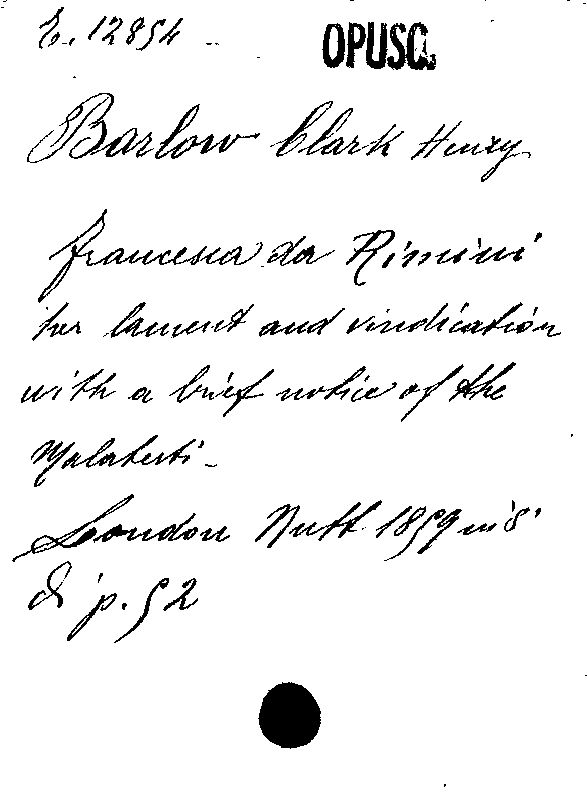 E. 12854
OPUSC.
Barlow Clark Henry
Francesca da Rimini
her lament and vindication
with a brief notice of the
Malatesti -
London Nutt 1859 in 8°
di p. 52